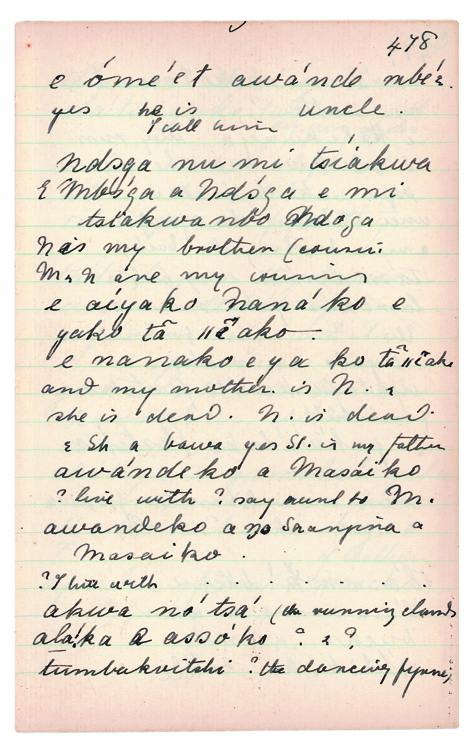 478
e óméet awánde mbéε.
yes he is uncle.
I call him
Ndoga nu mi tsiákwa
ε Mbóga a Ndóga e mi
tsiakwando Ndoga
N is my brother (cousin
M & N are my cousins
e aiyako Nana'ko e
yako tã ǁẽ'ako
e nanako e ya ko tã ǁẽ'ako
and my mother is N. &
she is dead. N. is dead.
ε Sh a bawa yes Sh. is my father
awándeko a Masáiko
? live with ? say aunt to M.
awandeko a Snangina a
Masaiko.
? I live with
akwa nó tsá (the running clouds
aláka a assóko ? & ?
tumbakwitshi ? the dancing